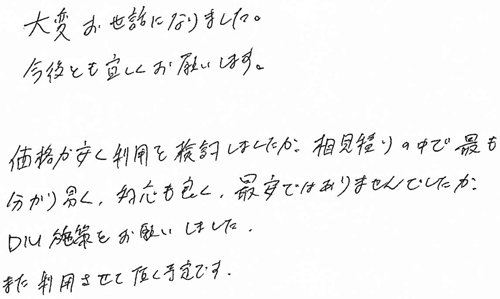 大変お世話になりました。
今後とも宜しくお願いします。
価格が安く利用を検討しましたが、相見積りの中で最も
分かり易く、対応も良く、最安ではありませんでしたが、
DM施策をお願いしました。
また利用させて頂く予定です。